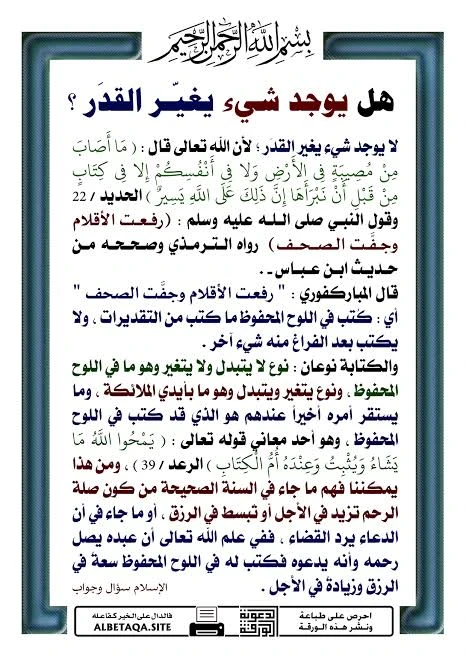 بسم الله الرحمن الرحيم
هل يوجد شيء يغيّر القدَر ؟
لا يوجد شيء يغير القدَر ؛ لأن الله تعالى قال : ( مَا أَصَابَ
مِنْ مُصِيبَةٍ فِي الأَرْضِ وَلا فِي أَنْفُسِكُمْ إِلا فِي كِتَابٍ
مِنْ قَبْلِ أَنْ نَبْرَأَهَا إِنَّ ذَلِكَ عَلَى اللَّهِ يَسِيرٌ ) الحديد / 22
وقول النبي صلى الله عليه وسلم : (رفعت الأقلام
وجفَّت الصحف) رواه الترمذي وصححه من
حديث ابن عباس ـ .
قال المباركفوري : " رفعت الأقلام وجفَّت الصحف "
أي : كَتب في اللوح المحفوظ ما كتب من التقديرات ، ولا
يكتب بعد الفراغ منه شيء آخر .
والكتابة نوعان : نوع لا يتبدل ولا يتغير وهو ما في اللوح
المحفوظ ، ونوع يتغير ويتبدل وهو ما بأيدي الملائكة ، وما
يستقر أمره أخيراً عندهم هو الذي قد كتب في اللوح
المحفوظ ، وهو أحد معاني قوله تعالى : ( يَمْحُوا اللَّهُ مَا
يَشَاءُ وَيُثْبِتُ وَعِنْدَهُ أُمُّ الْكِتَابِ ) الرعد / 39) ، ومن هذا
يمكننا فهم ما جاء في السنة الصحيحة من كون صلة
الرحم تزيد في الأجل أو تبسط في الرزق ، أو ما جاء في أن
الدعاء يرد القضاء ، ففي علم الله تعالى أن عبده يصل
رحمه وأنه يدعوه فكتب له في اللوح المحفوظ سعةً في
الرزق وزيادةً في الأجل .
الإسلام سؤال وجواب
احرص على طباعة
ونشر هذه الورقة
الدعوية
الورقة
فالدال على الخير كفاعله
ALBETAQA.SITE